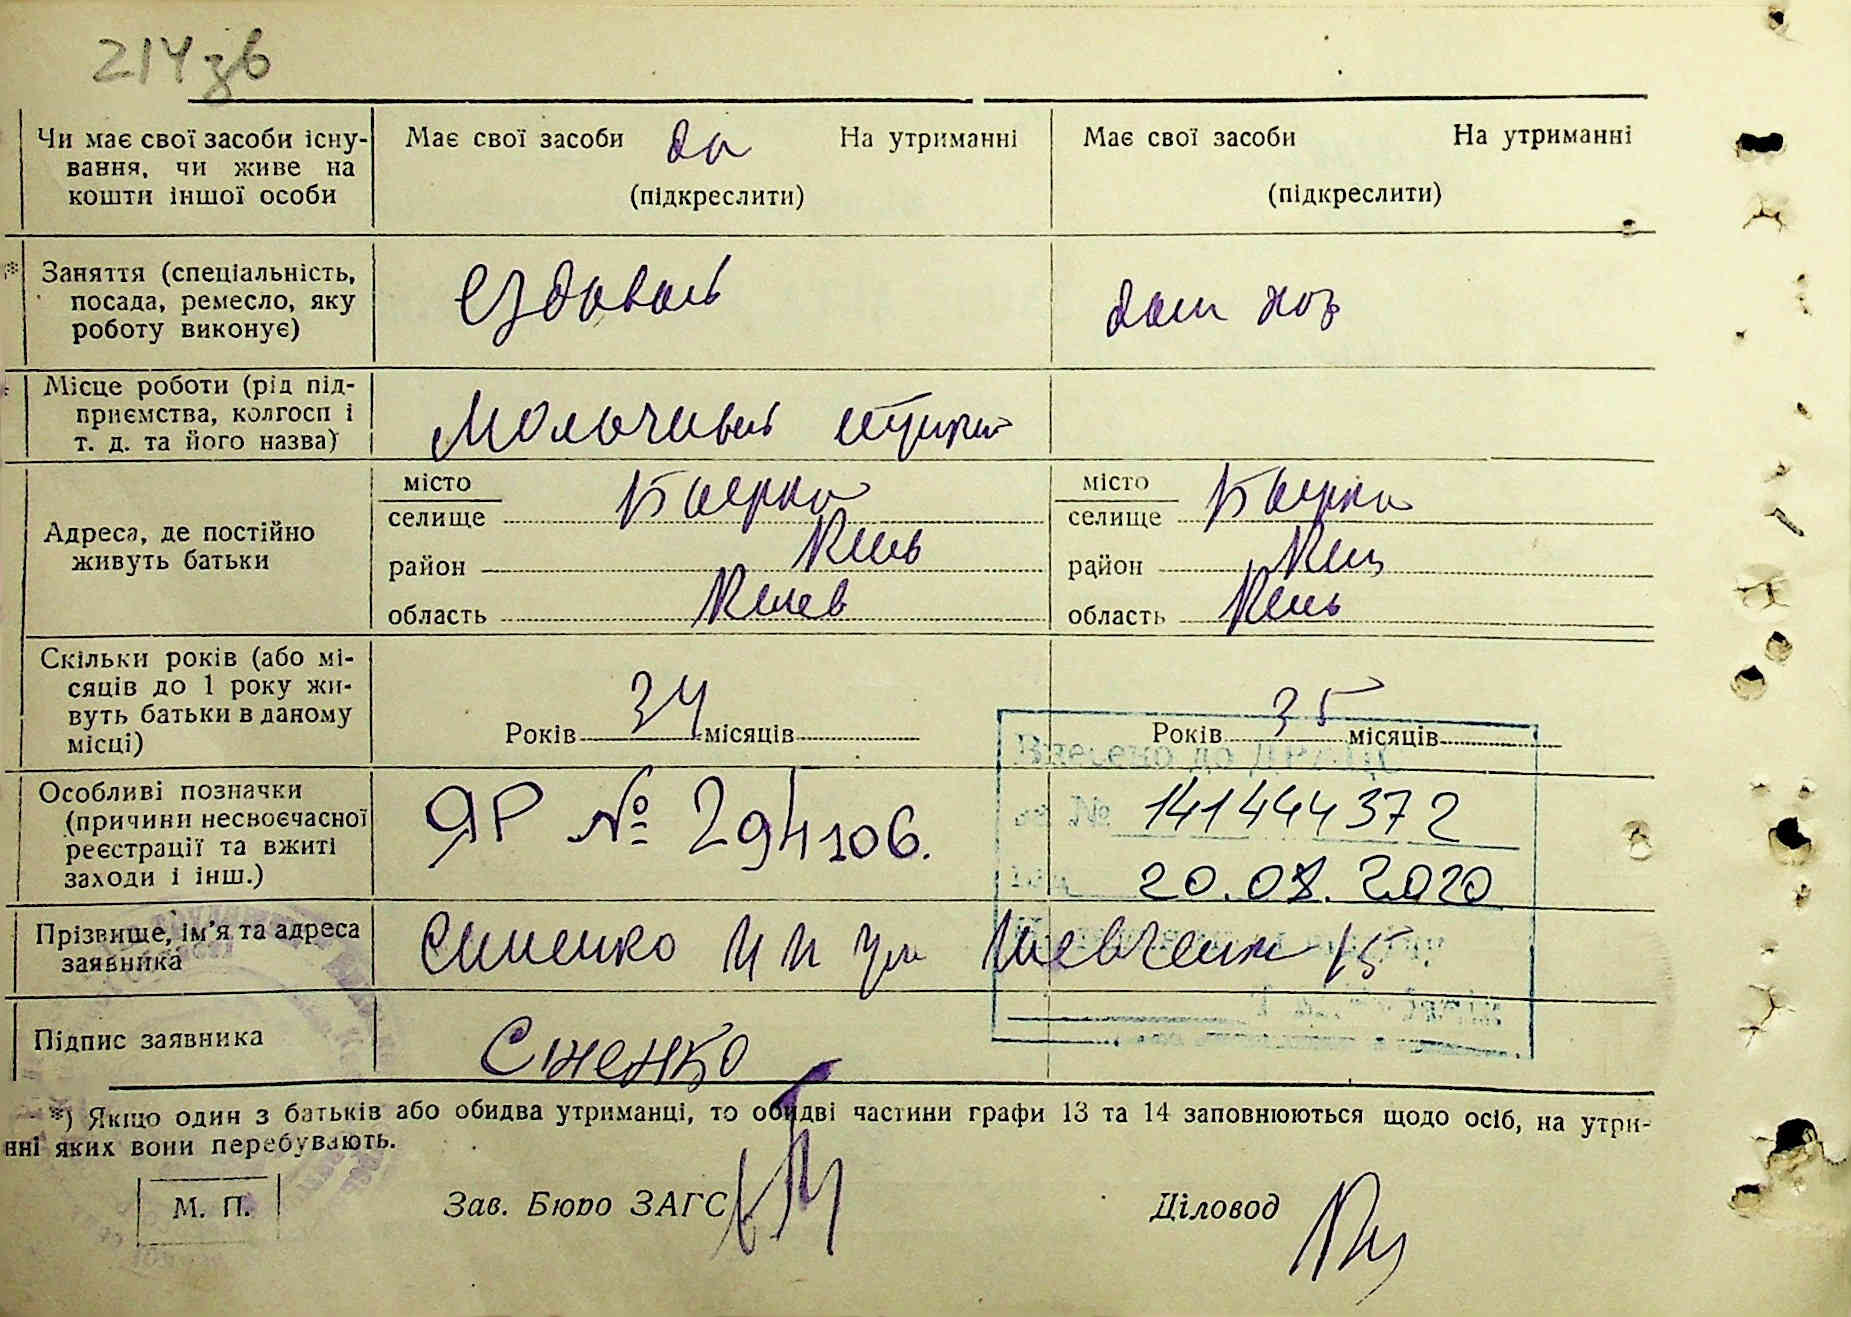 214 зв
Чи має свої засоби існу-
вання, чи живе на
кошти іншої особи
Має свої засоби да На утриманні
(підкреслити)
Має свої засоби На утриманні
(підкреслити)
* Заняття (спеціальність,
посада, ремесло, яку
роботу виконує)
дом хоз
Місце роботи (рід під-
приємства, колгосп і
т. д. та його назва)
Адреса, де постійно
живуть батьки
місто
селище Баерка
район Киев
область Киев
місто
селище Баерка
район
область Киев
Скільки років (або мі-
сяців до 1 року жи-
вуть батьки в даному
місці)
Років 34 місяців
Років 35 місяців
Особливі позначки
(причини несвоєчасної
реєстрації та вжиті
заходи і інш.)
ЯР № 294106.
Внесено до ДРАЦС
за № 141444372
20.08.2020
Прізвище, ім'я та адреса
заявника
Синенко И И ул Шевченко 15
Підпис заявника
Сіненко
*) Якщо один з батьків або обидва утриманці, то обидві частини графи 13 та 14 заповнюються щодо осіб, на утри-
нні яких вони перебувають.
М. П.
Зав. Бюро ЗАГС
Діловод